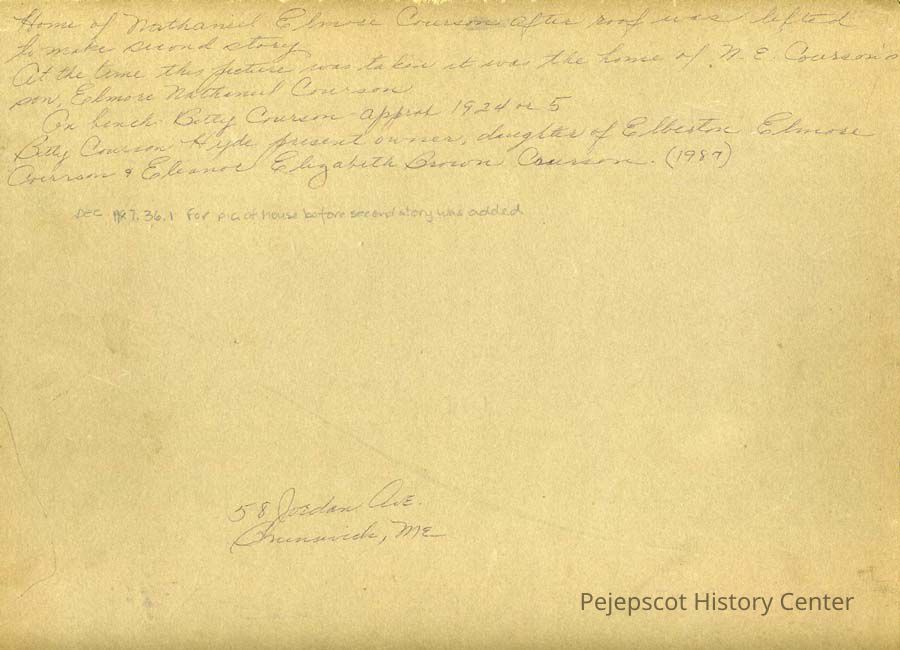 Home of Nathaniel Elmore Courson after roof was lifted
to make second story
At the time this picture was taken it was the home of N. E. Courson's
son, Elmore Nathaniel Courson
On bench Betty Courson approx 1924 or 5
Betty Courson Hyde present owner, daughter of Elberton Elmore
Courson & Eleanor Elizabeth Brown Courson. (1987)
SEC 7.36.1 For pic of house before second story was added
58 Jordan Ave.
Brunswick, ME
Pejepscot History Center